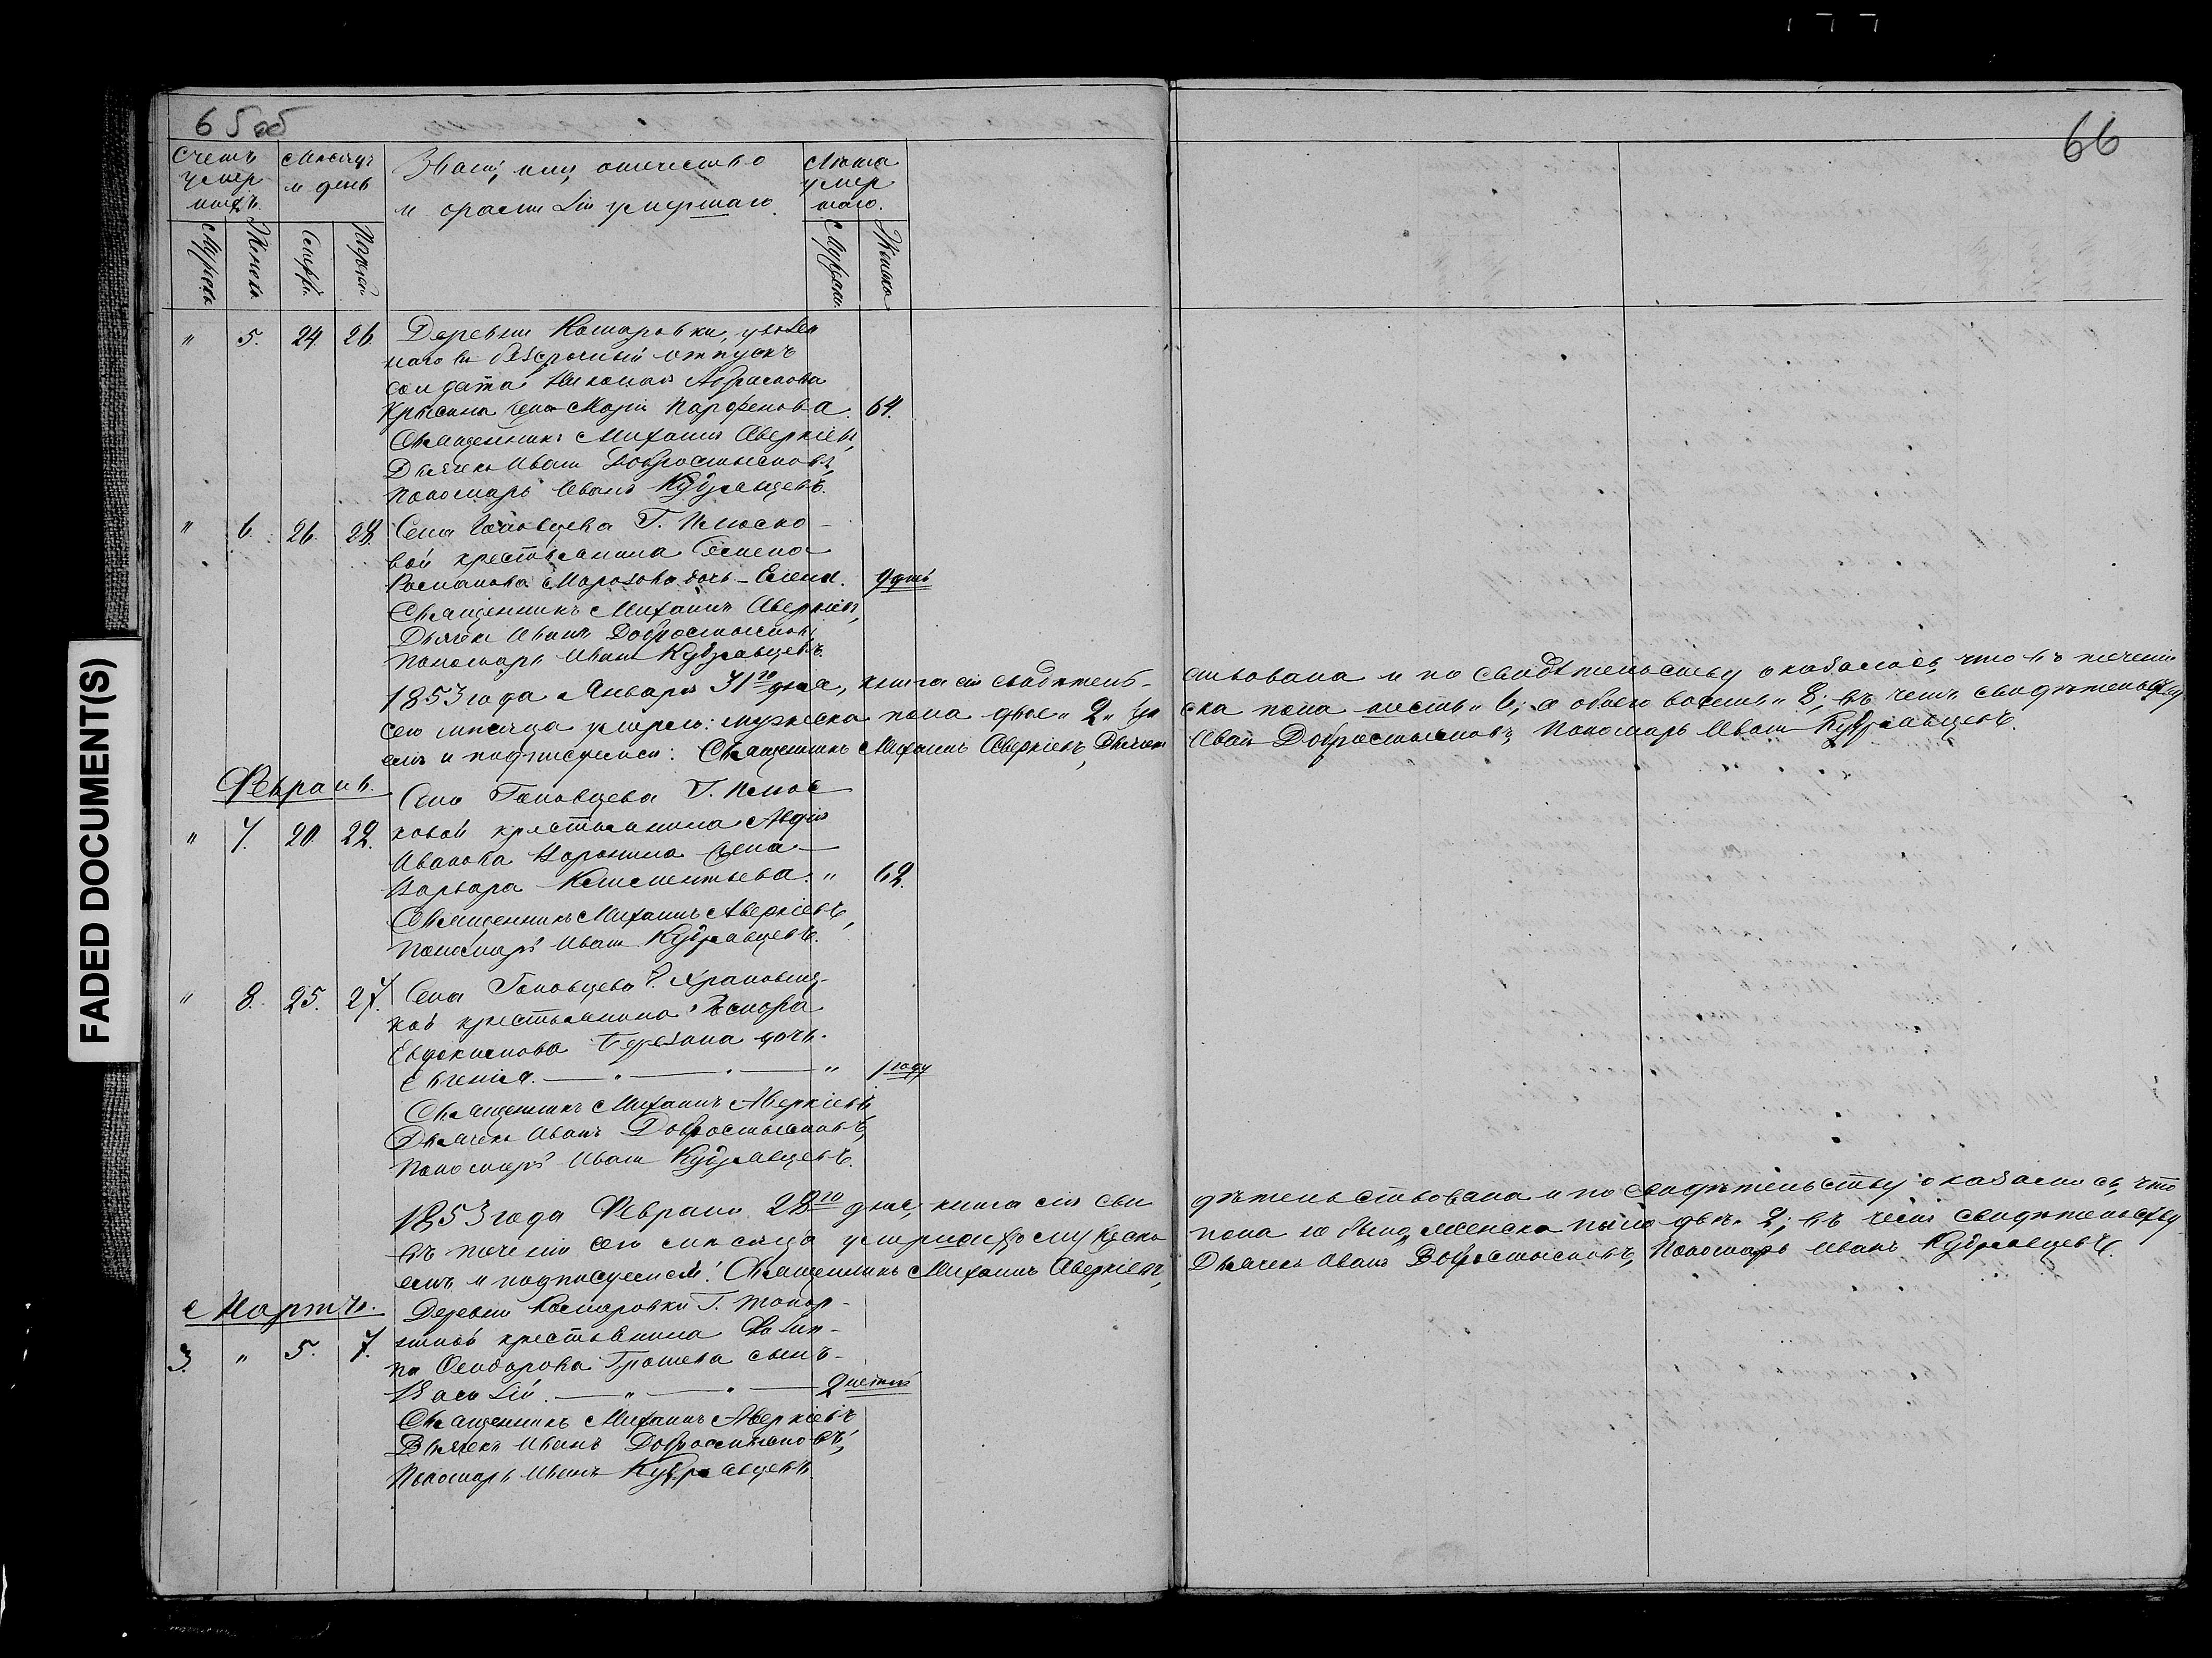 65 об
66
Счетъ умер шихъ.
Мѣсяцъ и день
Званіе, имя, отечество
и фамилія умершаго.
Лѣта умер шаго.
Мужеска
Женска
Смерти
Погребенія
Мужеска
Женска
" 5. 24. 26. Деревни Комаровки, уволен
наго въ безсрочный отпускъ
солдата Николая Абрамова
жена Марія Парфенова. 64.
Священникъ Михаилъ Аверкіевъ,
Дьячекъ Иванъ Добросмысловъ,
Пономарь Иванъ Кудрявцевъ.
" 6. 26. 28. Села Головцева Г. Плюско-
вой крестьянина Семена
Романова Морозова дочь Елена. 9 дней
Священникъ Михаилъ Аверкіевъ,
Дьячекъ Иванъ Добросмысловъ,
Пономарь Иванъ Кудрявцевъ.
1853 года Января 31го дня, книга сія свидѣтель- ствована и по свидѣтельству оказалось, что въ теченіи
сего мѣсяца умерло: мужеска пола двое " 2 " жен ска пола шесть " 6; а обоего восемь " 8; въ чемъ свидѣтельству
емъ и подписуемся: Священникъ Михаилъ Аверкіевъ, Дьячекъ Иванъ Добросмысловъ, Пономарь Иванъ Кудрявцевъ.
Февраль.
Села Головцева Г. Плюс
" 7. 20. 22. ковой крестьянина Авдія
Иванова Воронина жена
Варвара Климентьева. " 62.
Священникъ Михаилъ Аверкіевъ,
Пономарь Иванъ Кудрявцевъ.
" 8. 25. 27. Села Головцева Г. Храповиц-
кой крестьянина
Евдокимова Березина дочь
Евгенія. " 1 году
Священникъ Михаилъ Аверкіевъ
Дьячекъ Иванъ Добросмысловъ,
Пономарь Иванъ Кудрявцевъ.
1853 года Февраля 28го дня, книга сія сви дѣтельствована и по свидѣтельству оказалось, что
въ теченіи сего мѣсяца умершихъ мужеска пола не было, женска пола двѣ " 2; въ чемъ свидѣтельству
емъ и подписуемся: Священникъ Михаилъ Аверкіевъ, Дьячекъ Иванъ Добросмысловъ, Пономарь Иванъ Кудрявцевъ.
Мартъ.
Деревни Комаровки Г.
3. " 5. 7. крестьянина Филип-
па Ѳеодорова Грошева сынъ
Василій. " 2 недѣль
Священникъ Михаилъ Аверкіевъ
Дьячекъ Иванъ Добросмысловъ,
Пономарь Иванъ Кудрявцевъ.
FADED DOCUMENT(S)